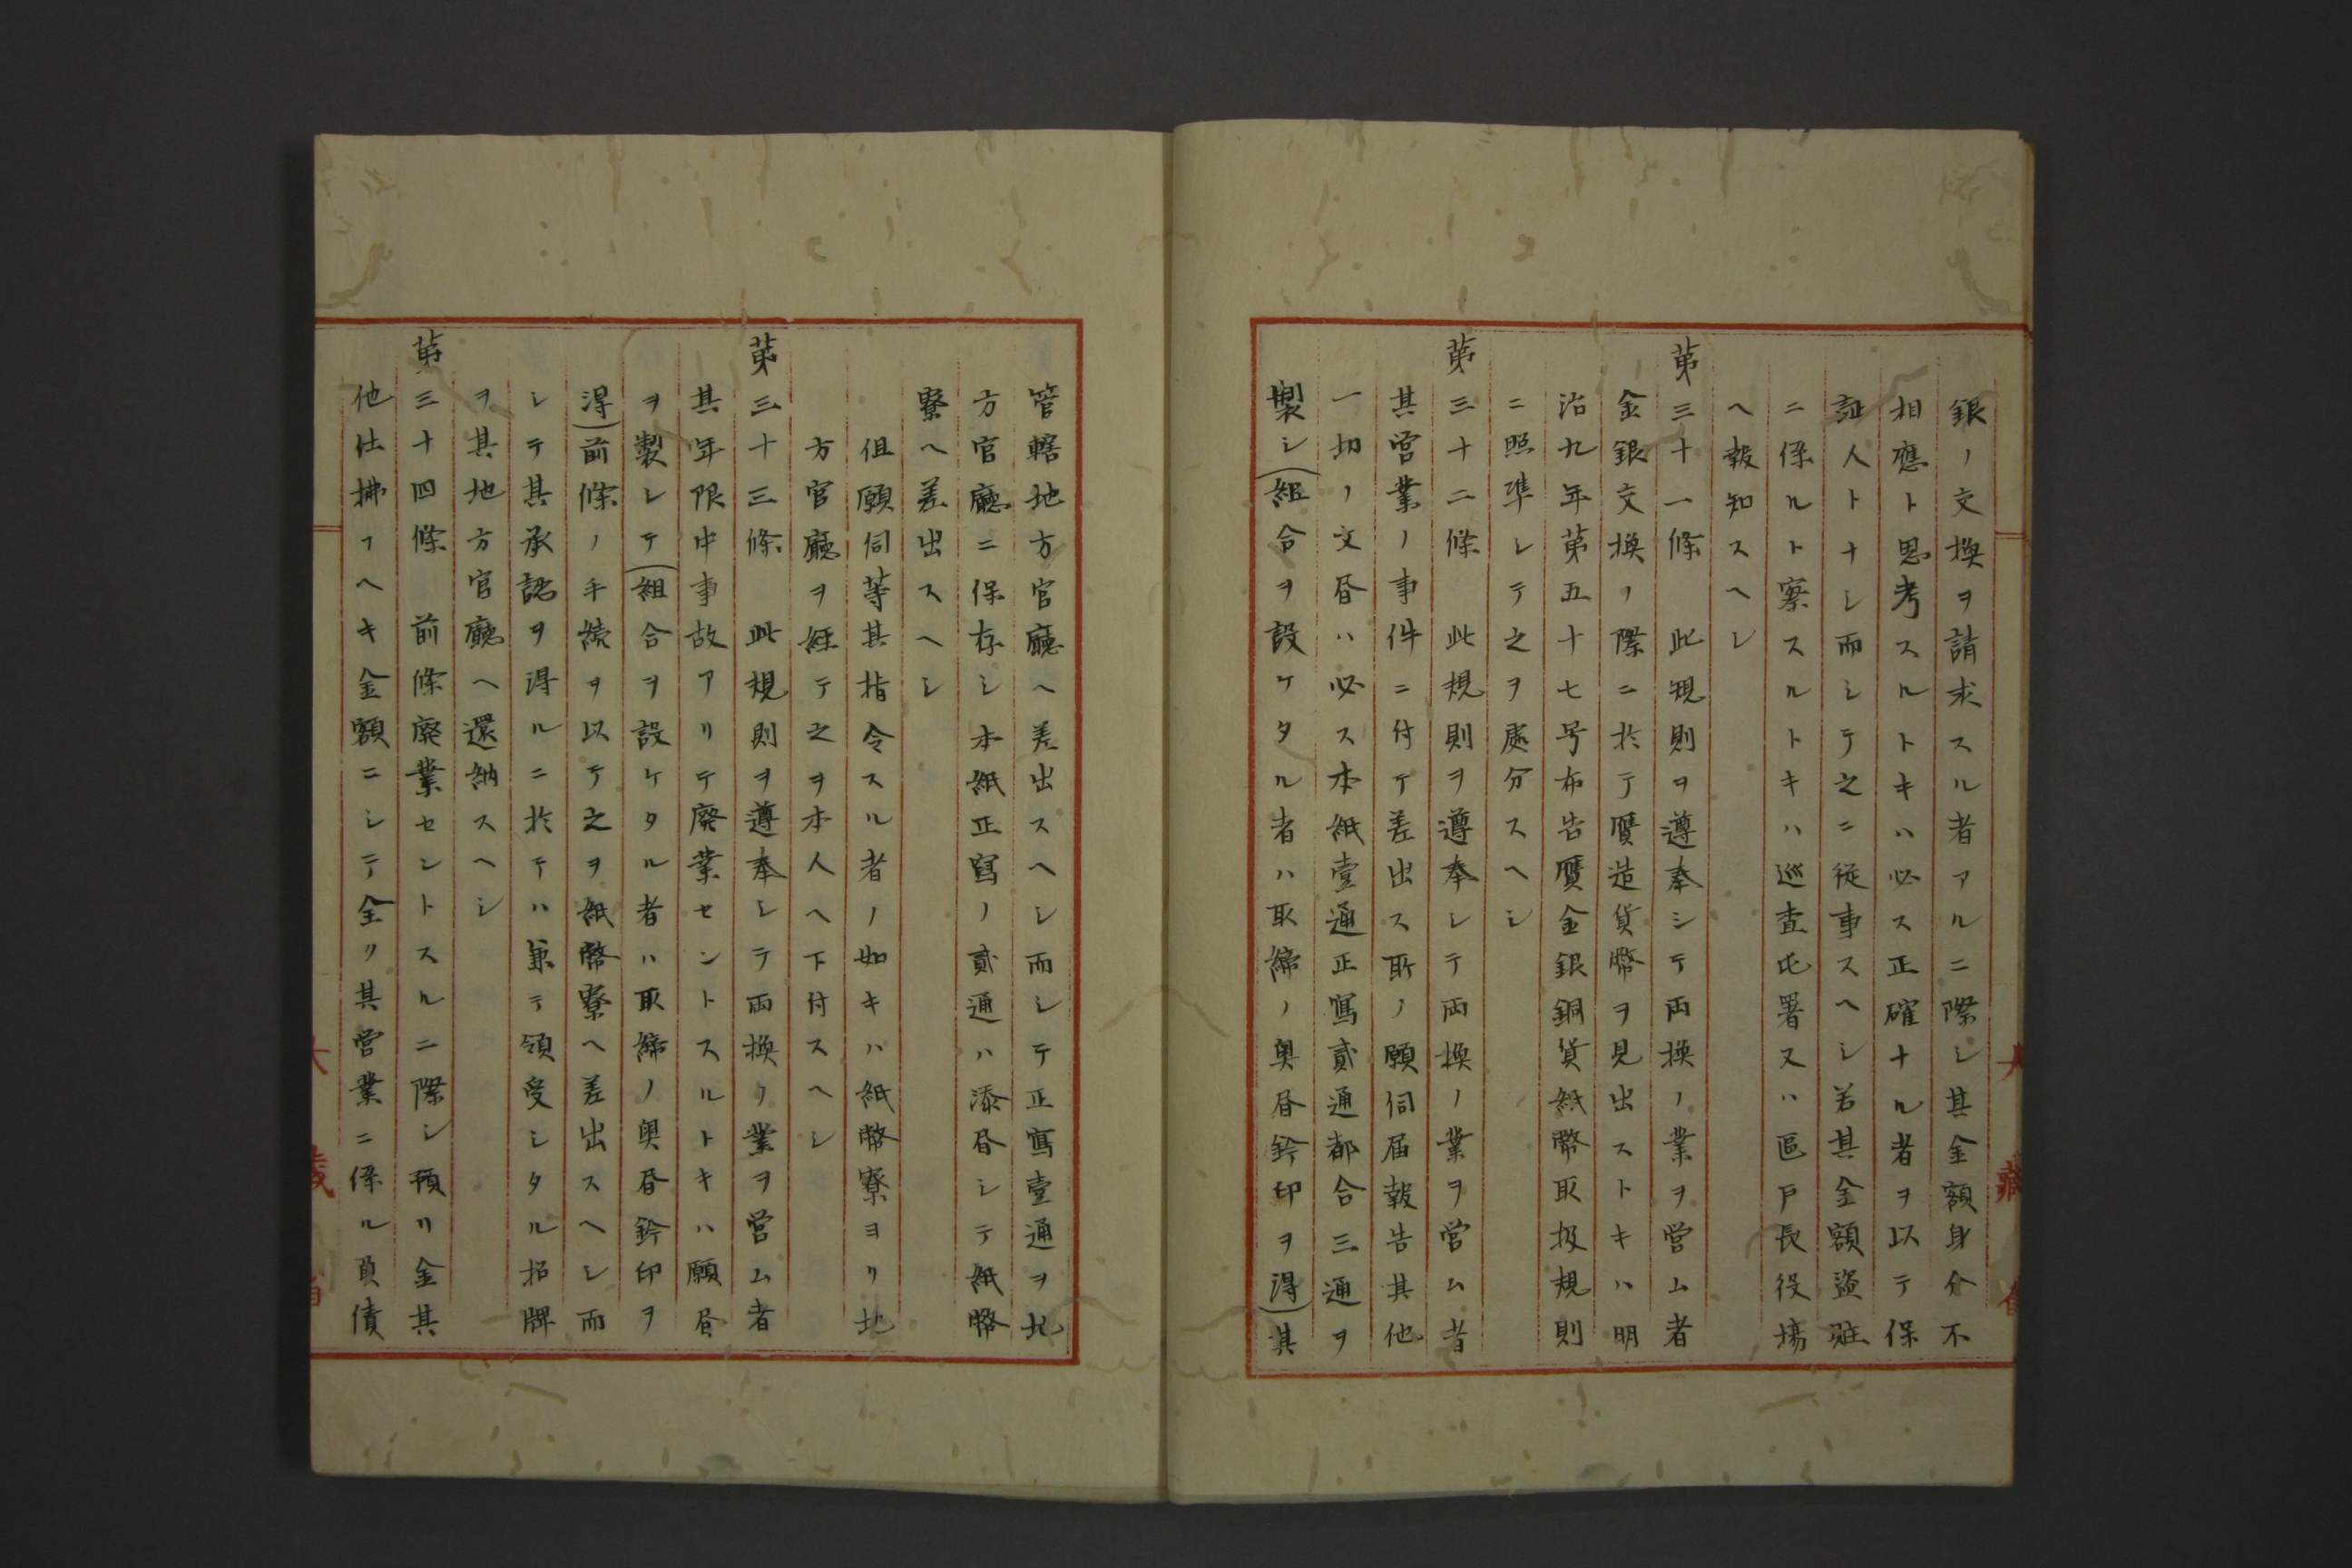 銀ノ交換ヲ請求スル者アルニ際シ其金額身分不
相應ト思考スルトキハ必ス正確ナル者ヲ以テ保
証人トナシ而シテ之ニ従事スヘシ若其金額盗賍
ニ係ルト察スルトキハ巡査屯署又ハ區戸長役場
ヘ報知スヘシ
第三十一條　此規則ヲ遵奉シテ両換ノ業ヲ営ム者
金銀交換ノ際ニ於テ贋造貨幣ヲ見出ストキハ明
治九年第五十七号布告贋金銀銅貨紙幣取扱規則
ニ照準シテ之ヲ處分スヘシ
第三十二條　此規則ヲ遵奉シテ両換ノ業ヲ営ム者
其営業ノ事件ニ付テ差出ス所ノ願伺届報告其他
一切ノ文書ハ必ス本紙壹通正寫貳通都合三通ヲ
製シ(組合ヲ設ケタル者ハ取締ノ奥書鈐印ヲ得)其
管轄地方官廳ヘ差出スヘシ而シテ正寫壹通ヲ地
方官廳ニ保存シ本紙正寫ノ貳通ハ添書シテ紙幣
寮ヘ差出スヘシ
但願伺等其指令スル者ノ如キハ紙幣寮ヨリ地
方官廳ヲ経テ之ヲ本人ヘ下付スヘシ
第三十三條　此規則ヲ遵奉シテ両換ノ業ヲ営ム者
其年限中事故アリテ廃業セントスルトキハ願書
ヲ製シテ(組合ヲ設ケタル者ハ取締ノ奥書鈐印ヲ
得)前條ノ手続ヲ以テ之ヲ紙幣寮ヘ差出スヘシ而
シテ其承認ヲ得ルニ於テハ兼テ領受シタル招牌
ヲ其地方官廳ヘ還納スヘシ
第三十四條　前條廃業セントスルニ際シ預リ金其
他仕拂フヘキ金額ニシテ全ク其営業ニ係ル負債
大藏省